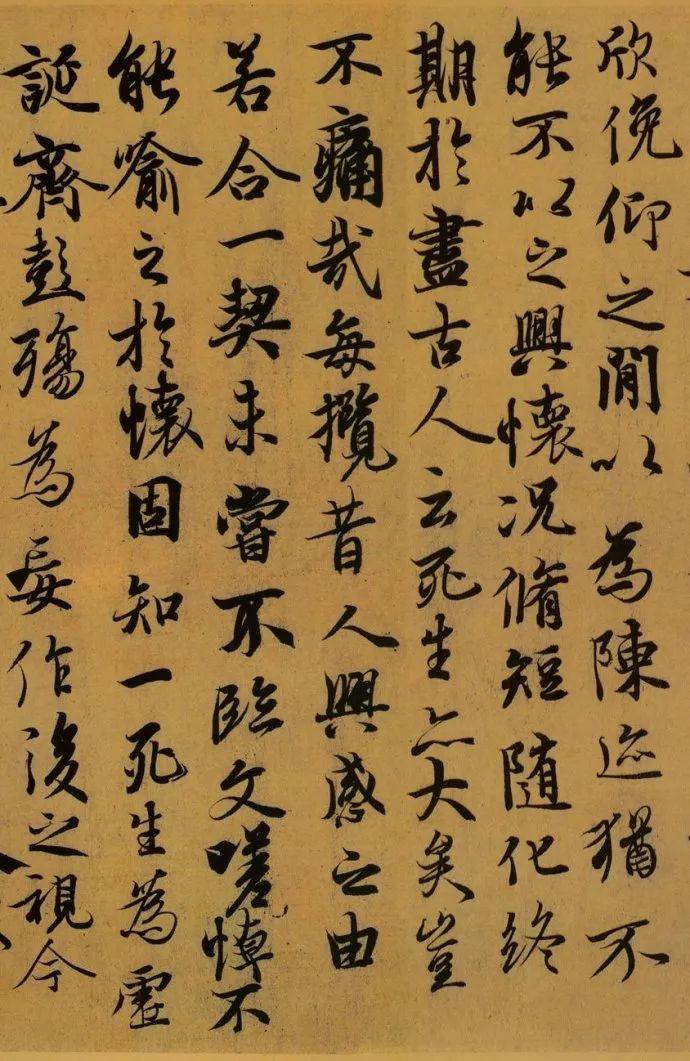 欣俛仰之閒以為陳迹猶不
能不以之興懷況脩短隨化終
期於盡古人云死生亦大矣豈
不痛哉每攬昔人興感之由
若合一契未嘗不臨文嗟悼不
能喻之於懷固知一死生為虛
誕齊彭殤為妄作後之視今